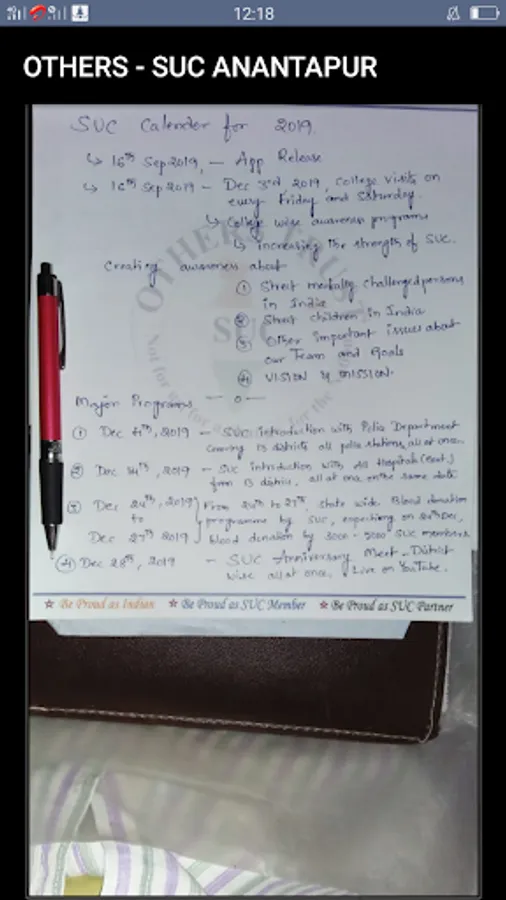 12:18
OTHERS - SUC ANANTAPUR
SUC Calender for 2019.
↳ 16th Sep 2019, — App Release
↳ 16th Sep 2019 — Dec 3rd, 2019, College visits on
every Friday and Saturday.
↳ College wise awareness programs
↳ increasing the strength of SUC.
Creating awareness about
① Street mentally challenged persons
in India
② Street children in India
③ Other important issues about
our Team and Goals
④ VISION & MISSION.
Major Programs — o —
① Dec 4th, 2019 — SUC introduction with Police Department
covering 13 districts all police stations, all at once.
② Dec 14th, 2019 — SUC introduction with All Hospitals (Govt.)
from 13 districts, all at once on the same date.
③ Dec 24th, 2019 From 24th to 27th, state wide Blood donation
to programme by SUC, expecting on 24th Dec,
Dec 27th 2019 blood donation by 3000 - 5000 SUC members
④ Dec 28th, 2019 — SUC Anniversary Meet - District
wise all at once. Live on YouTube.
OTHERS TRUST
SUC
Not for me for the
★ Be Proud as Indian ★ Be Proud as SUC Member ★ Be Proud as SUC Partner